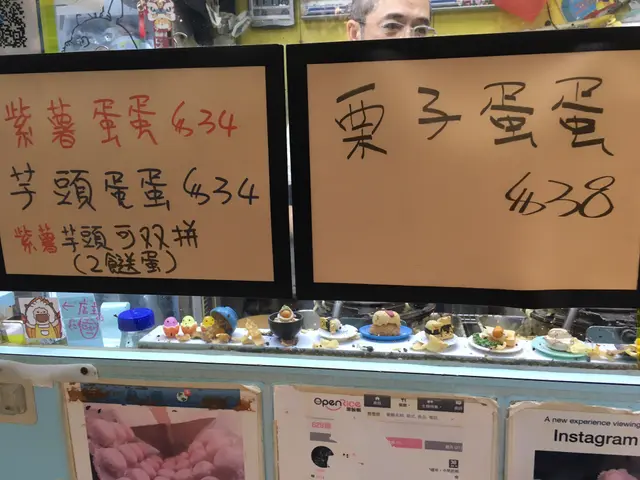 紫薯蛋蛋 $34
芋頭蛋蛋 $34
紫薯芋頭可双拼
(2餸蛋)
栗子蛋蛋
$38
OpenRice
開飯喇
A new experience viewing
Instagram